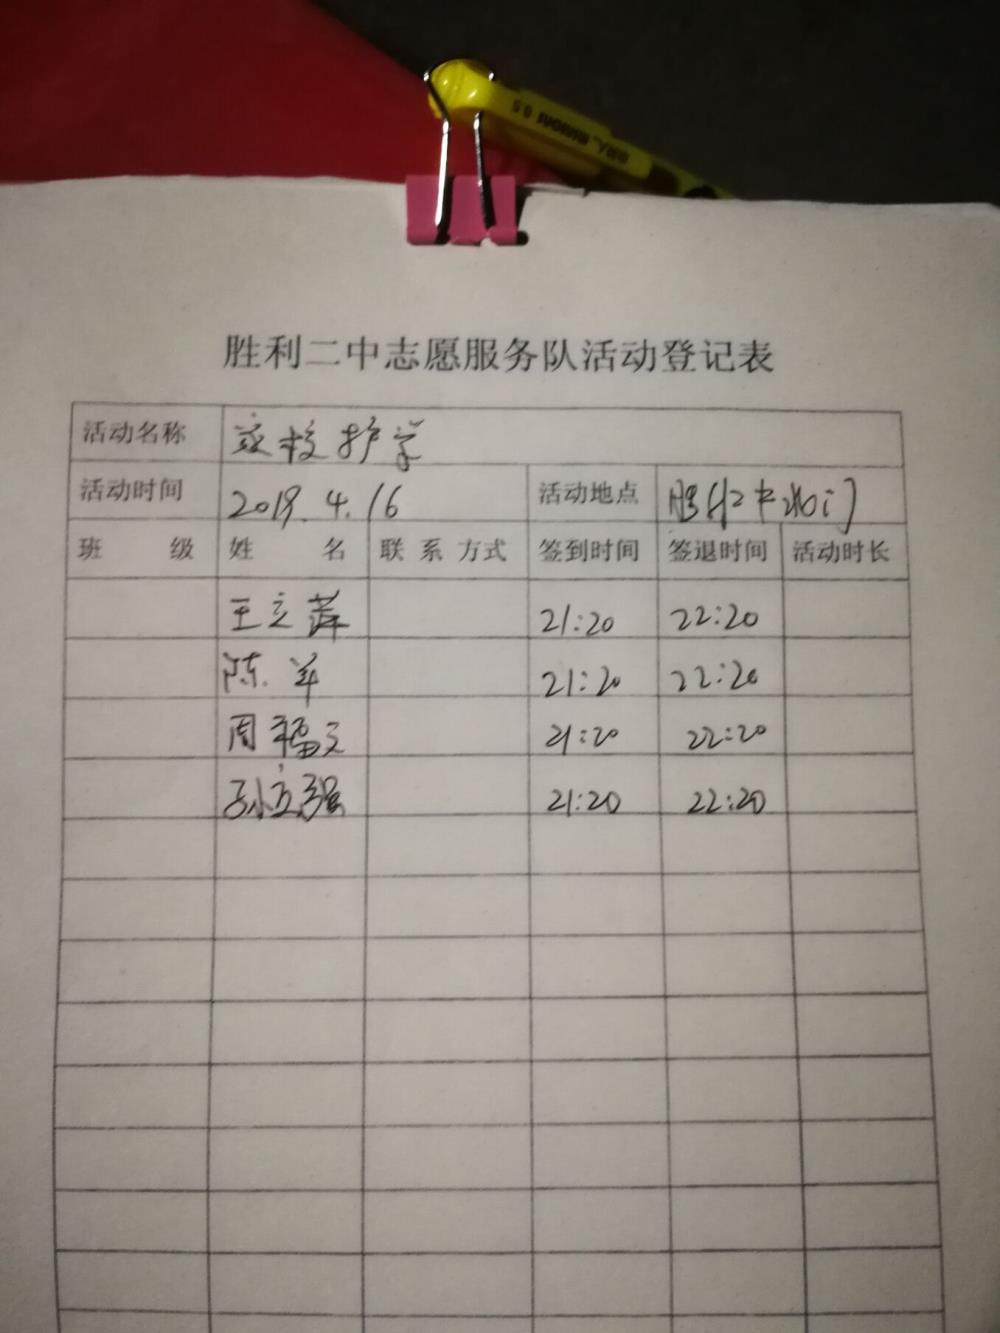 胜利二中志愿服务队活动登记表
活动名称 家校护学
活动时间 2019.4.16 活动地点 胜利二中北门
班 级 姓 名 联系方式 签到时间 签退时间 活动时长
王立萍 21:20 22:20
陈 21:20 22:20
周福文 21:20 22:20
孙立强 21:20 22:20